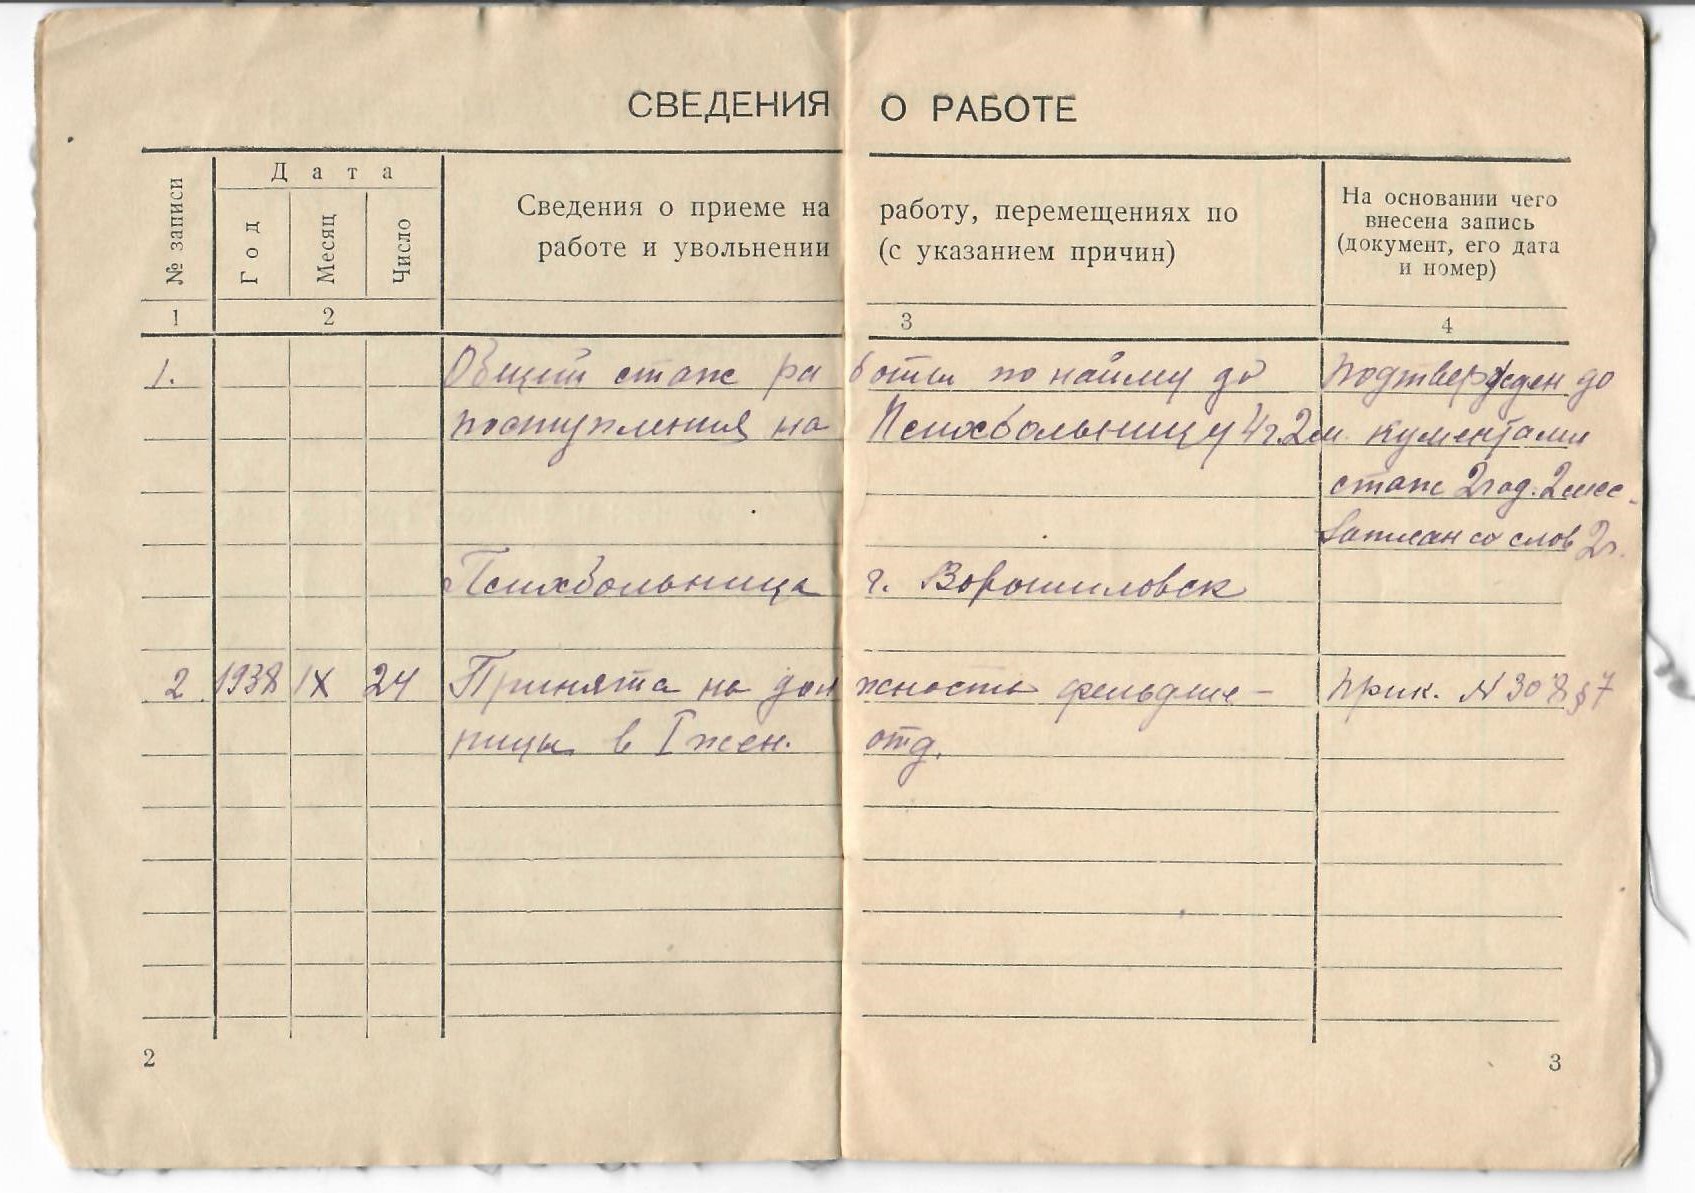 СВЕДЕНИЯ О РАБОТЕ
№ записи
Дата
Год
Месяц
Число
Сведения о приеме на работу, перемещениях по
работе и увольнении (с указанием причин)
На основании чего
внесена запись
(документ, его дата
и номер)
1 2 3 4
1. Общий стаж работы по найму до Подтвержден до
поступления на Психбольницу 4г.2м. кументами
стаж 2год.2мес.
Записан со слов 2г.
Психбольница г. Ворошиловск
2 1938 IX 24 Принята на должность фельдше- Прик. N 308 §7
рицы в I жен. отд.
2 3